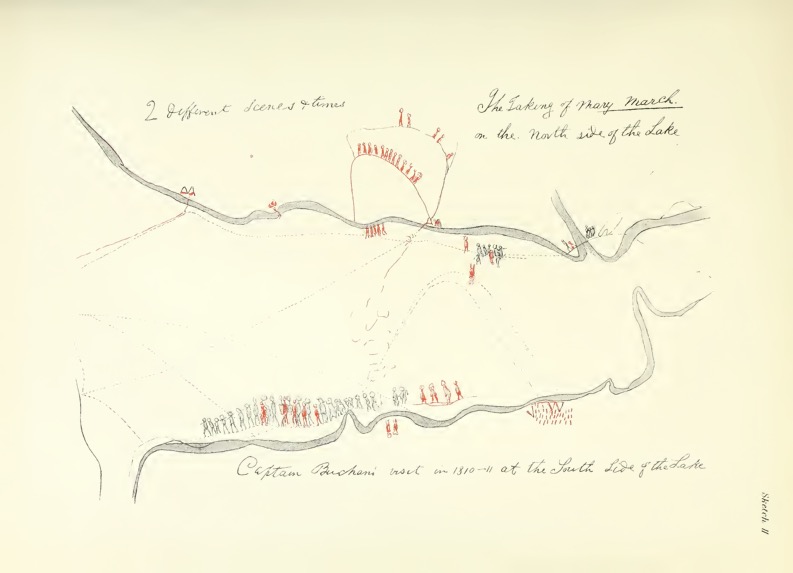 2 Different Scenes & times
The Taking of Mary March.
on the North side of the Lake
Captain Buchans visit in 1810-11 at the South Side of the Lake
Sketch II